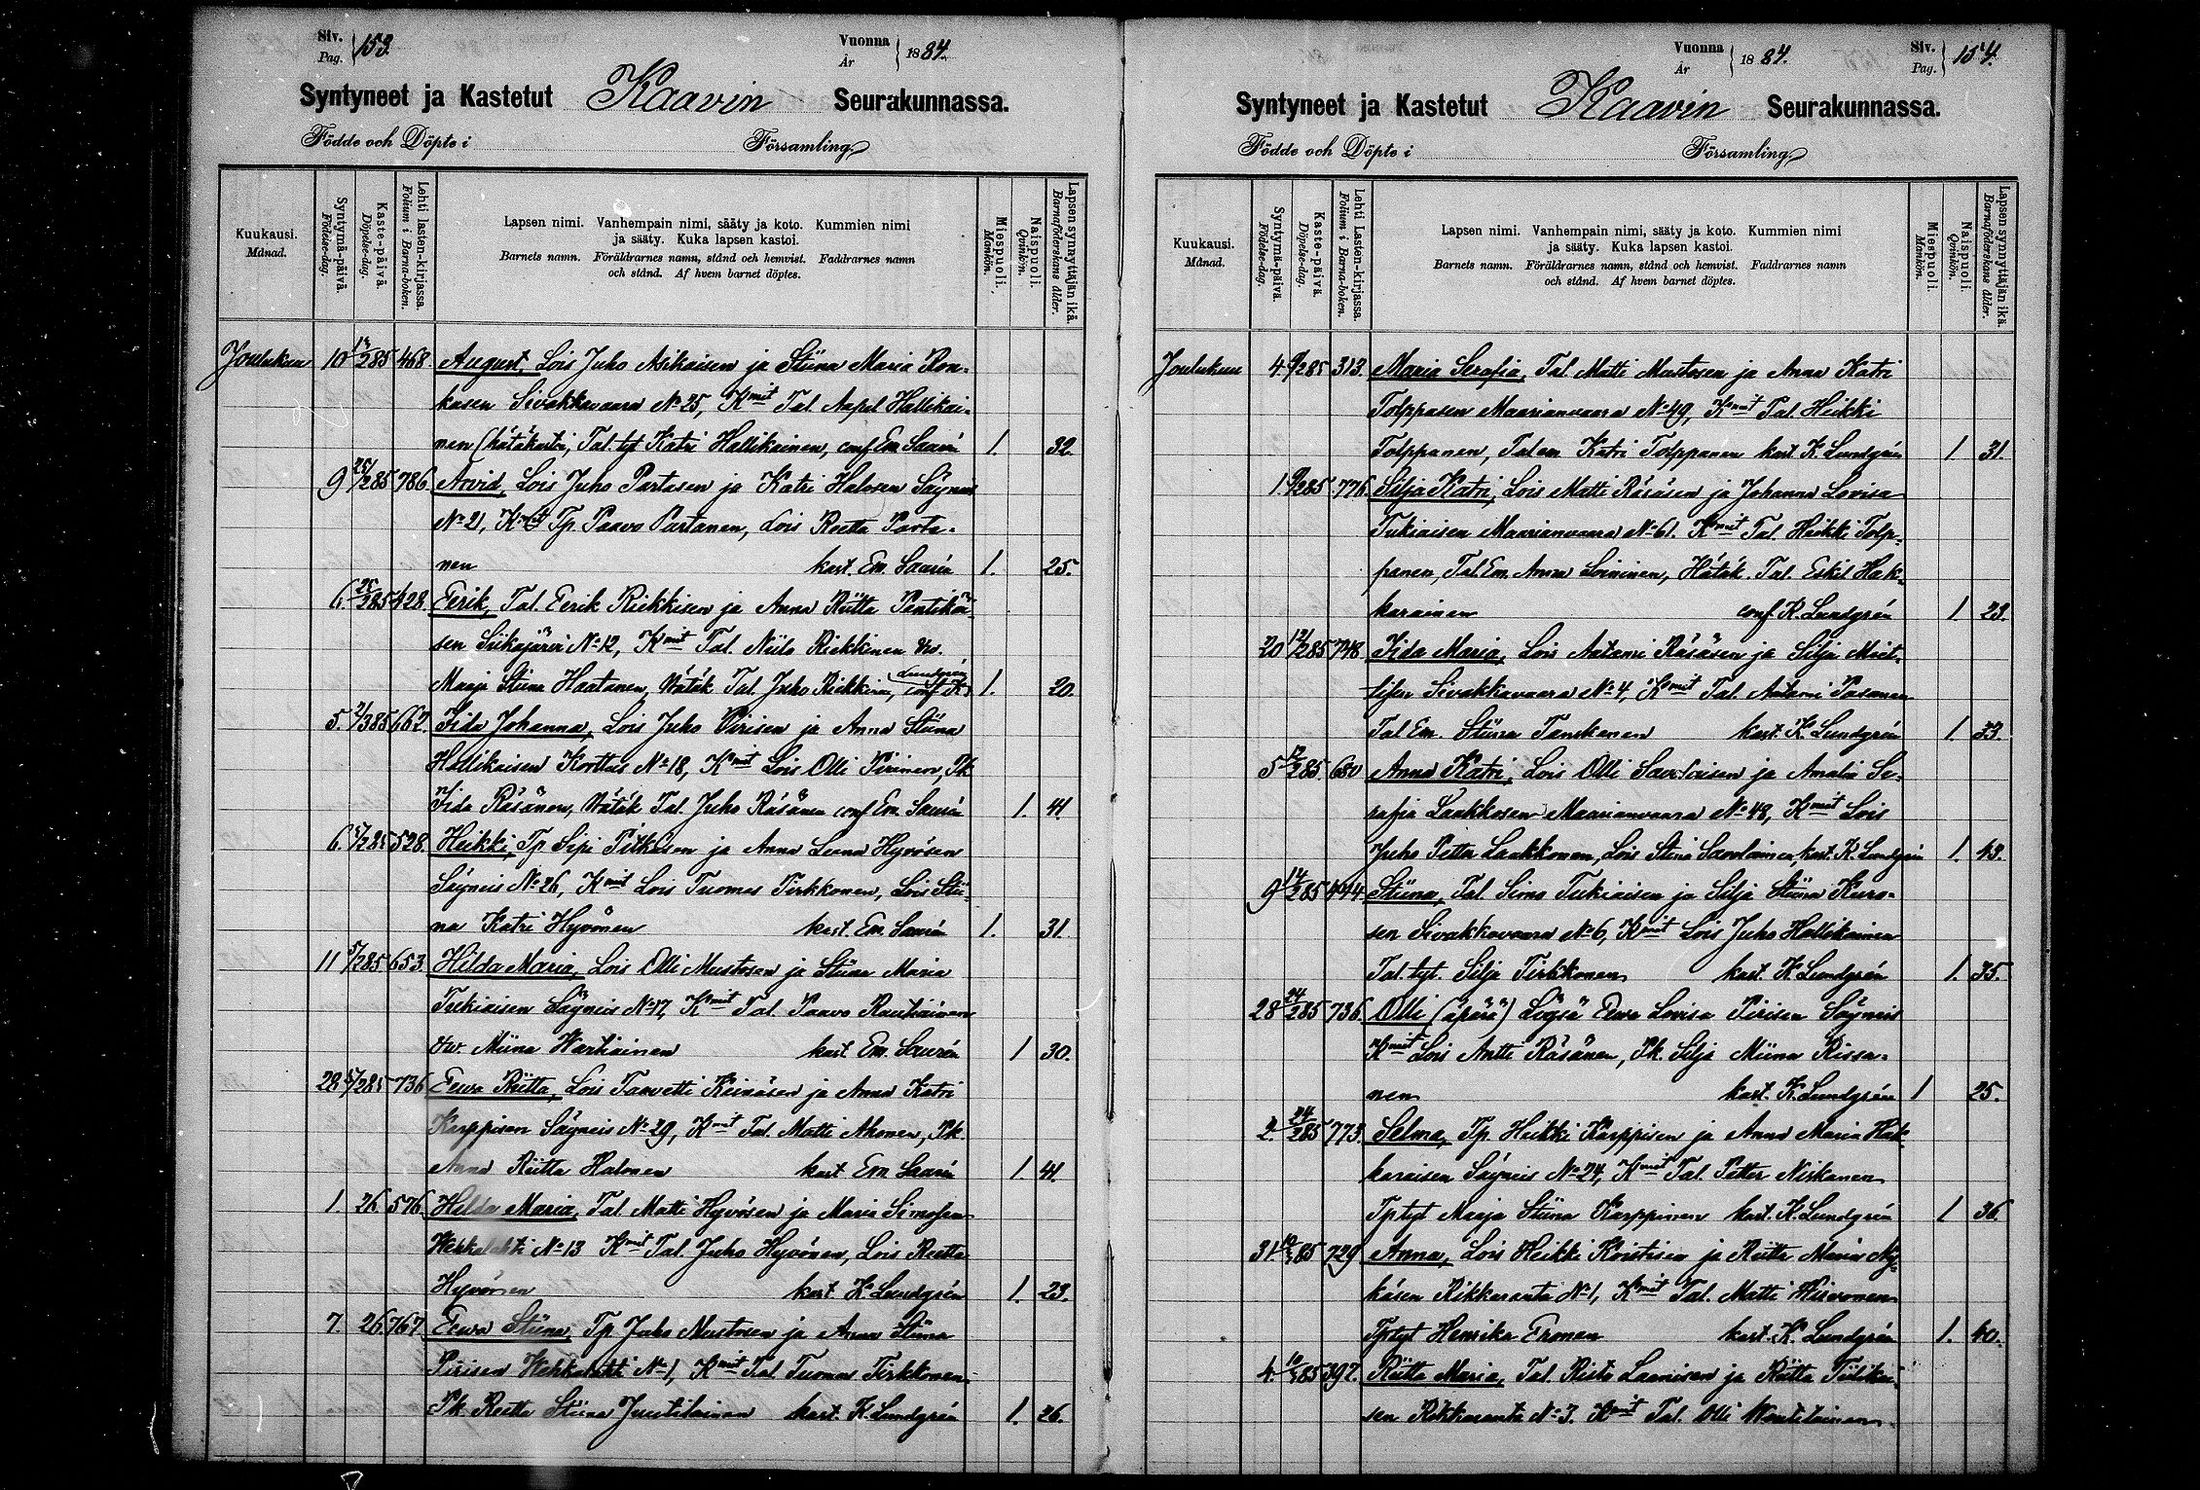 Siv. Pag. 153.
Vuonna År 1884.
Syntyneet ja Kastetut Kaavin Seurakunnassa.
Födde och Döpte i Församling
Kuukausi. Månad.
Syntymä-päivä. Födelse-dag.
Kaste-päivä. Döpelse-dag.
Lehti lasten-kirjassa. Folium i Barna-boken.
Lapsen nimi. Vanhempain nimi, sääty ja koto. Kummien nimi
ja sääty. Kuka lapsen kastoi.
Barnets namn. Föräldrarnes namn, stånd och hemvist. Faddrarnes namn
och stånd. Af hvem barnet döptes.
Miespuoli. Mankön.
Naispuoli. Qvinkön.
Lapsen synnyttäjän ikä. Barnaföderskans ålder.
Joulukuu 10 85 468. August, Lois Juho Asikaisen ja Stiina Maria Ron-
kasen Sivakkavaara No 25, Kmit Tal. Aapel Hallikai-
nen (hätäkasti, Tal. tyt Katri Hallikainen, conf. Em. Saurén 1. 32.
9 85 786 Arvid, Lois Juho Partasen ja Katri Halosen Säyneis
No 21, Kmit Tp. Paavo Partanen, Lois Reetta Parta-
nen kast. Em. Saurén 1. 25.
6. 85 428. Eerik, Tal. Eerik Riekkisen ja Anna Riitta Pentikäi-
sen Siikajärvi No 12, Kmit Tal. Niilo Riekkinen Vw.
Maija Stiina Haatanen, Hätäk Tal. Juho Riekkinen, conf. K. Lundgrén 1. 20.
5. 2/3 85 662. Iida Johanna, Lois Juho Piirisen ja Anna Stiina
Hallikaisen Korttais No 18, Kmit Lois Olli Piirinen, Pk
Iida Räsänen, Hätäk Tal. Juho Räsänen conf. Em. Saurén 1. 41
6. 85 528. Heikki, Tp Sipi Pitkäsen ja Anna Leena Hyvösen
Säyneis No 26, Kmit Lois Tuomas Tirkkonen, Lois Stii-
na Katri Hyvönen kast. Em. Saurén 1. 31.
11 85 653. Hilda Maria, Lois Olli Mustosen ja Stiina Maria
Tukiaisen Säyneis No 17, Kmit Tal. Paavo Rautiainen
Vw. Miina Wartiainen kast. Em. Saurén 1 30.
28. 85 736 Eewa Riitta, Lois Taavetti Keinäsen ja Anna Katri
Karppisen Säyneis No 29, Kmit Tal. Matti Ahonen, Pk.
Anna Riitta Halonen kast Em Saurén 1. 41.
1. 26. 576. Hilda Maria, Tal. Matti Hyvösen ja Maria Simosen
Wehkalahti No 13 Kmit Tal. Juho Hyvönen, Lois Reetta
Hyvönen kast K. Lundgrén 1. 23.
7. 26. 767 Eewa Stiina, Tp Juho Mustosen ja Anna Stiina
Piirisen Wehkalahti No 1, Kmit Tal Tuomas Tirkkonen
Pk. Reetta Stiina Juutilainen kast. K. Lundgrén 1. 26.
Vuonna År 1884.
Siv. Pag. 154.
Syntyneet ja Kastetut Kaavin Seurakunnassa.
Födde och Döpte i Församling
Kuukausi. Månad.
Syntymä-päivä. Födelse-dag.
Kaste-päivä. Döpelse-dag.
Lehti Lasten-kirjassa. Folium i Barna-boken.
Lapsen nimi. Vanhempain nimi, sääty ja koto. Kummien nimi
ja sääty. Kuka lapsen kastoi.
Barnets namn. Föräldrarnes namn, stånd och hemvist. Faddrarnes namn
och stånd. Af hvem barnet döptes.
Miespuoli. Mankön.
Naispuoli. Qvinkön.
Lapsen synnyttäjän ikä. Barnaföderskans ålder.
Joulukuu 4 85 313. Maria Serafia, Tal. Matti Mustosen ja Anna Katri
Tolppasen Maarianvaara No 49, Kmit Tal. Heikki
Tolppanen, Tal em Katri Tolppanen kast. K. Lundgrén 1 31.
1. 85 776. Silja Katri, Lois Matti Räsäsen ja Johanna Lovisa
Tukiaisen Maarianvaara No 61. Kmit Tal. Heikki Tolp-
panen, Tal. Em. Anna Loininen, Hätäk. Tal. Eskil Hak-
karainen conf. K. Lundgrén 1 23.
20 85 748. Iida Maria, Lois Aatami Räsäsen ja Silja Miet-
tisen Sivakkavaara No 4, Kmit Tal. Aatami Pasanen
Tal Em. Stiina Tanskanen kast. K. Lundgrén 1. 33.
5 85 680 Anna Katri, Lois Olli Savolaisen ja Amalia Se-
rafia Laakkosen Maarianvaara No 48, Kmit Lois
Juho Petter Laakkonen, Lois Stina Savolainen, kast. K. Lundgrén 1. 43.
9 85 494. Stiina, Tal. Simo Tukiaisen ja Silja Stiina Kuro-
sen Sivakkavaara No 6, Kmit Lois Juho Hallikainen
Tal. tyt. Silja Tirkkonen kast. K. Lundgrén 1. 35.
28 85 736. Olli (äpärä) Lögsä Eewa Lovisa Piirisen Säyneis
Kmit Lois Antti Räsänen, Pk. Silja Miina Rissa-
nen kast. K. Lundgrén 1 25.
2. 85 773. Selma, Tp. Heikki Karppisen ja Anna Maria Hak-
karaisen Säyneis No 24, Kmit Tal. Petter Niskanen
Tptyt Maaja Stiina Karppinen kast. K. Lundgrén 1 36.
31. 85 729 Anna, Lois Heikki Koistisen ja Riitta Maria Ny-
käsen Rikkaranta No 1, Kmit Tal. Matti Hirvonen
Tptyt Henrika Eronen kast. K. Lundgrén 1. 40.
4. 85 392. Riitta Maria, Tal. Risto Laanisen ja Riitta Tiilikai-
sen Rikkaranta No 3. Kmit Tal. Olli Wentilainen